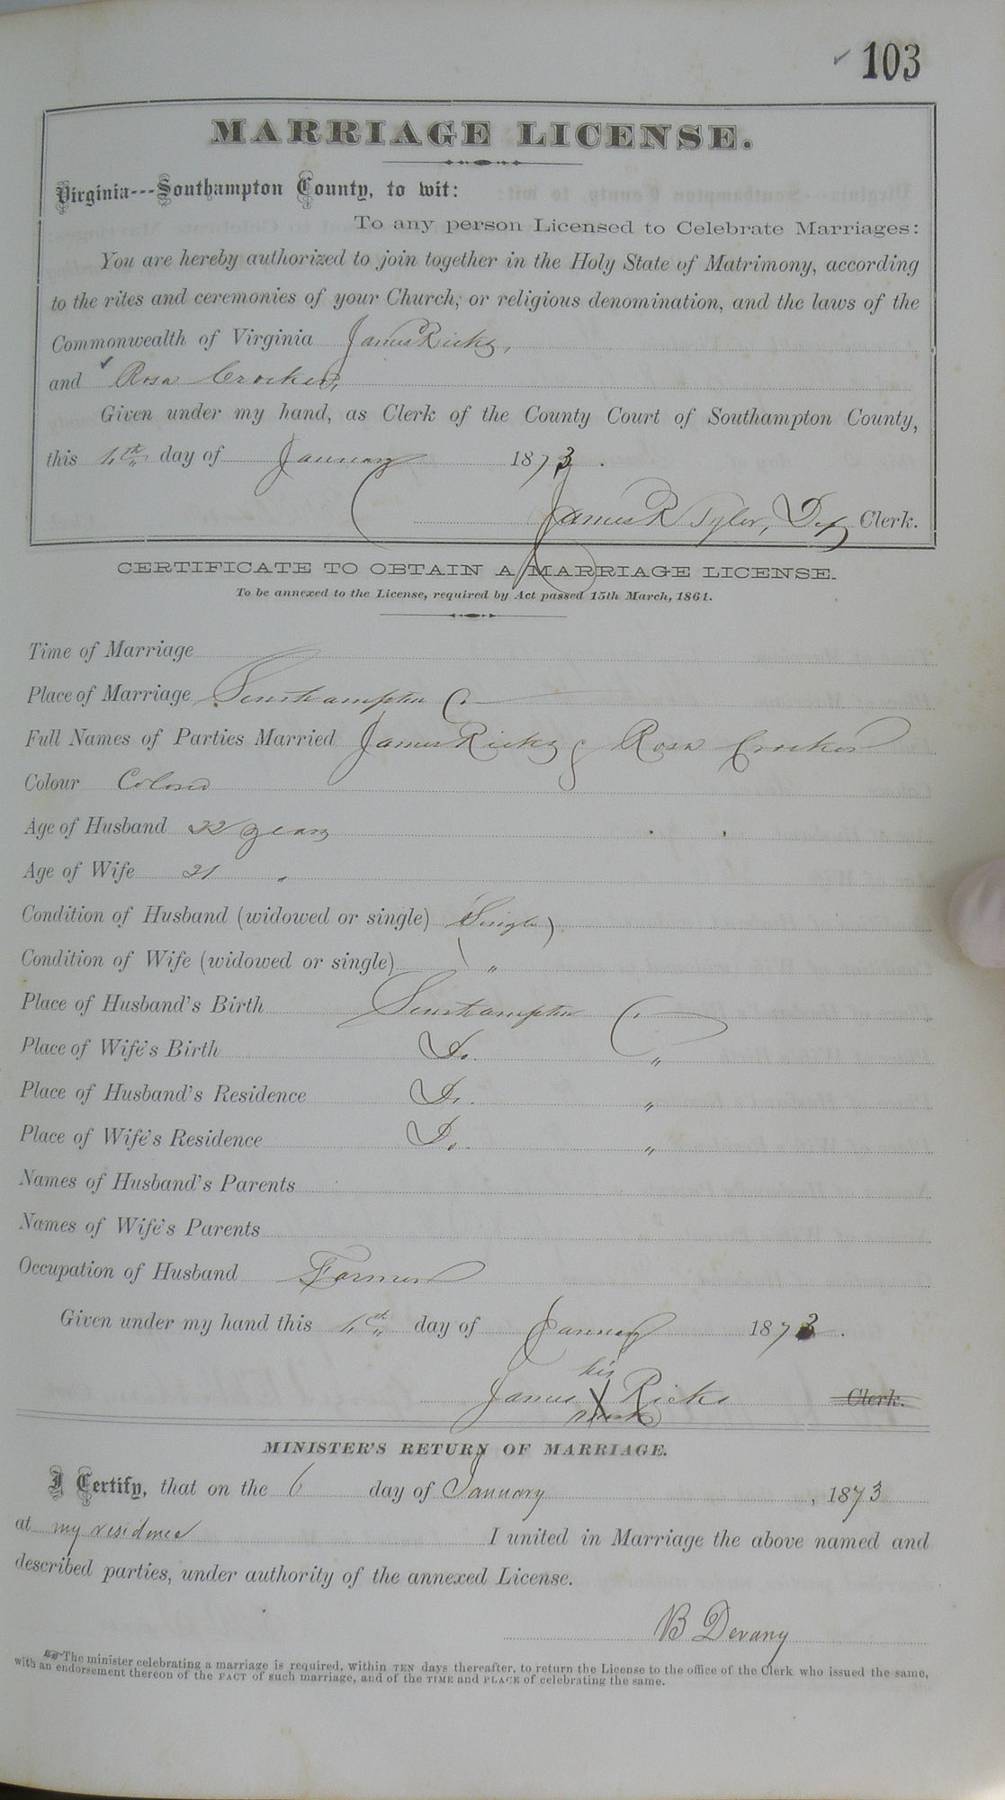 103
MARRIAGE LICENSE.
Virginia---Southampton County, to wit:
To any person Licensed to Celebrate Marriages:
You are hereby authorized to join together in the Holy State of Matrimony, according
to the rites and ceremonies of your Church, or religious denomination, and the laws of the
Commonwealth of Virginia James Ricks,
and Rosa Crocker,
Given under my hand, as Clerk of the County Court of Southampton County,
this day of January 1873.
James R Tyler, Dep Clerk.
CERTIFICATE TO OBTAIN A MARRIAGE LICENSE.
To be annexed to the License, required by Act passed 15th March, 1861.
Time of Marriage
Place of Marriage Southampton Co
Full Names of Parties Married James Ricks & Rosa Crocker
Colour Colored
Age of Husband 22 years
Age of Wife 21 "
Condition of Husband (widowed or single) Single
Condition of Wife (widowed or single) "
Place of Husband's Birth Southampton Co
Place of Wife's Birth Do. "
Place of Husband's Residence Do. "
Place of Wife's Residence Do. "
Names of Husband's Parents
Names of Wife's Parents
Occupation of Husband Farmer
Given under my hand this day of January 1873.
his
James X Ricks Clerk.
mark
MINISTER'S RETURN OF MARRIAGE.
I Certify, that on the 6 day of January, 1873
at my residence I united in Marriage the above named and
described parties, under authority of the annexed License.
B Devany
The minister celebrating a marriage is required, within TEN days thereafter, to return the License to the office of the Clerk who issued the same,
with an endorsement thereon of the FACT of such marriage, and of the TIME and PLACE of celebrating the same.